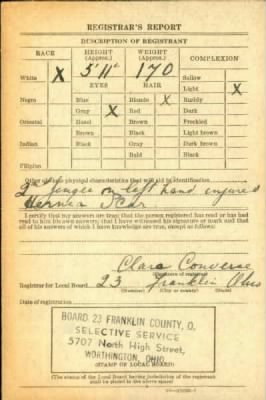 REGISTRAR'S REPORT
DESCRIPTION OF REGISTRANT
RACE HEIGHT (Approx.) WEIGHT (Approx.) COMPLEXION
5' 11" 170
White X Sallow
EYES HAIR Light X
Negro Blue Blonde X Ruddy
Gray X Red Dark
Oriental Hazel Brown Freckled
Brown Black Light brown
Indian Black Gray Dark brown
Bald Black
Filipino
Other obvious physical characteristics that will aid in identification
2nd finger on left hand injured
Hernia Scar
I certify that my answers are true; that the person registered has read or has had
read to him his own answers; that I have witnessed his signature or mark and that
all of his answers of which I have knowledge are true, except as follows:
Clara Converse
(Signature of registrar)
Registrar for Local Board 23 Franklin Ohio
(Number) (City or county) (State)
Date of registration
BOARD 23 FRANKLIN COUNTY, O.
SELECTIVE SERVICE
5707 North High Street,
WORTHINGTON, OHIO
(STAMP OF LOCAL BOARD)
(The stamp of the Local Board having jurisdiction of the registrant
shall be placed in the above space)